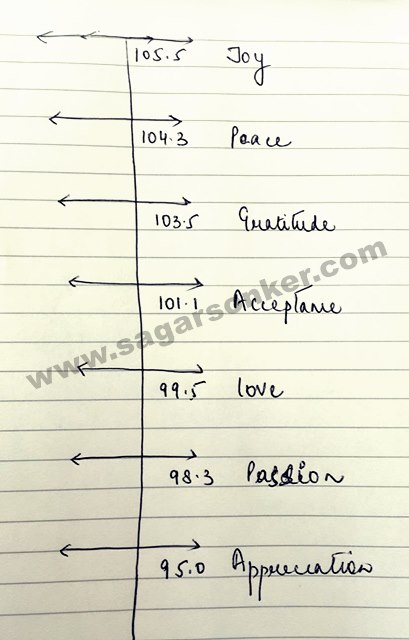 105.5 Joy
104.3 Peace
103.5 Gratitude
101.1 Acceptance
www.sagarsonker.com
99.5 love
98.3 Passion
95.0 Appreciation